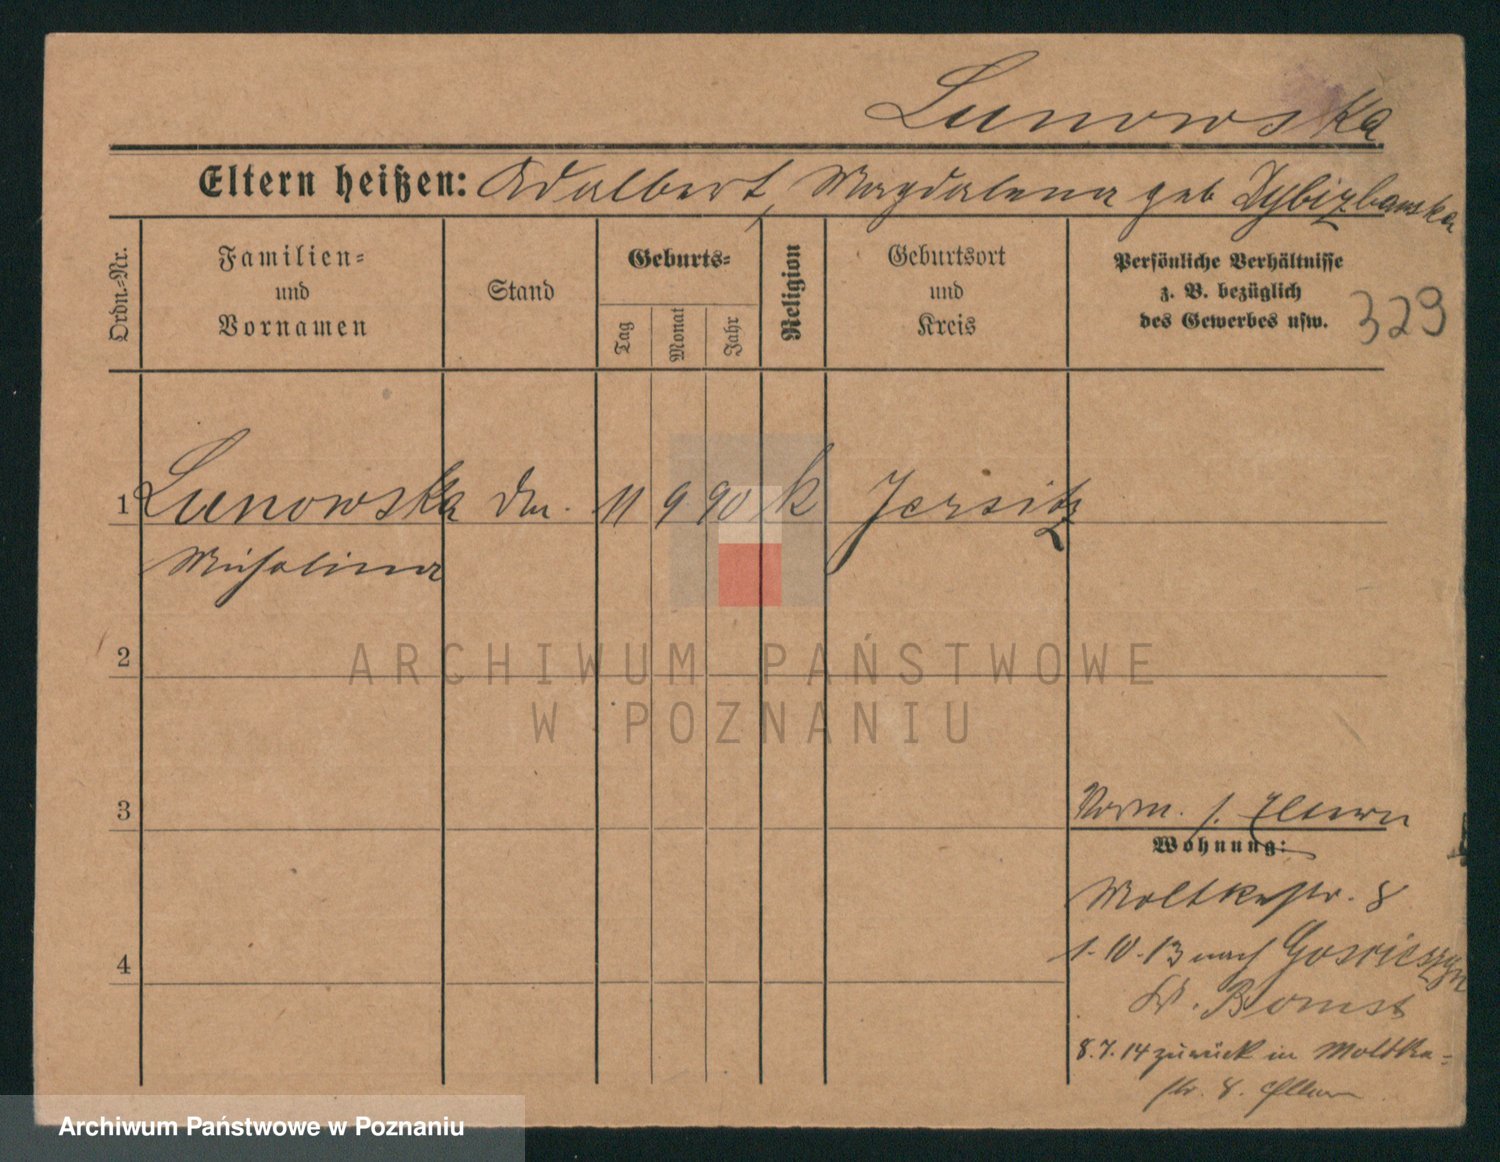 Lunowska
Eltern heißen: Adalbert, Magdalena geb
Ordn.=Nr.
Familien=
und
Vornamen
Stand
Geburts=
Tag
Monat
Jahr
Religion
Geburtsort
und
Kreis
Persönliche Verhältnisse
z. B. bezüglich
des Gewerbes usw.
329
1 Lunowska 11 9 90 k Jersitz
Michalina
2
ARCHIWUM PAŃSTWOWE
W POZNANIU
3
Norm. s. Eltern
Wohnung:
Moltkestr. 8
1.10.13 nach Goscieszyn
Kr. Bomst
4
8.7.14 zurück in Moltke=
str. 8. Eltern
Archiwum Państwowe w Poznaniu